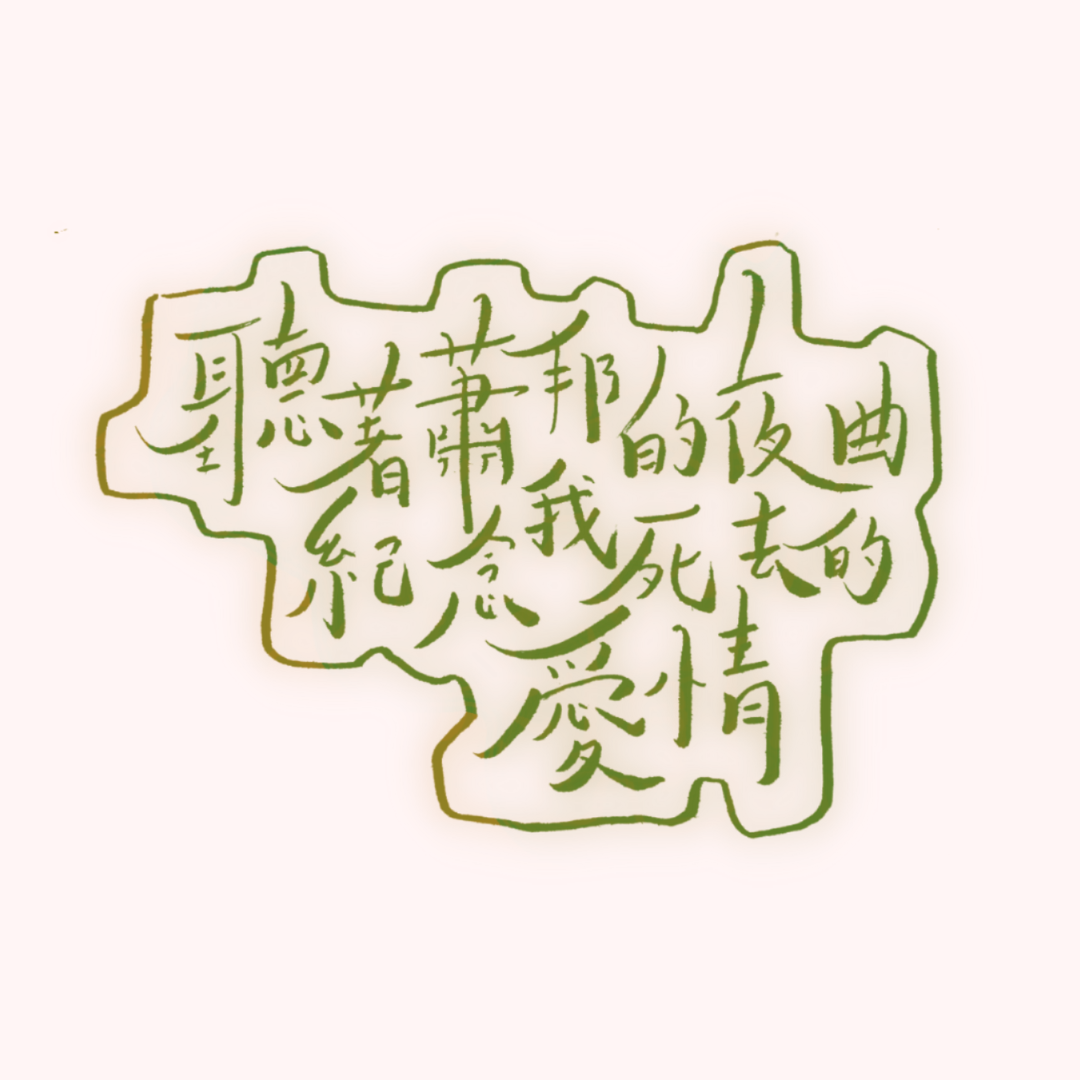 聽著蕭邦的夜曲
紀念我死去的
愛情